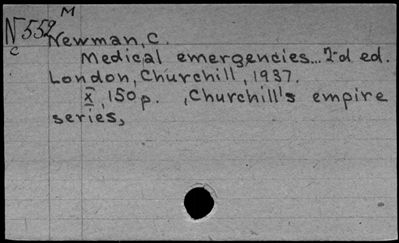 M
N552
c
Newman, C.
Medical emergencies... 2d ed.
London, Churchill, 1937.
x, 150 p. , Churchill's empire
series,